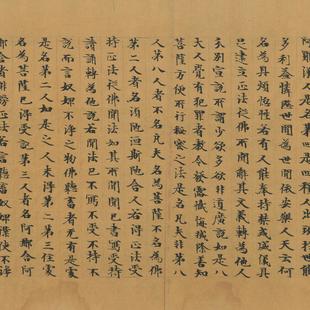 阿羅漢是名第四是四種人出現於世能
多利益憐愍世間為世間依安樂人天云何
名為具煩惱性若有人能奉持禁戒威儀具
足建立正法從佛所聞解其文義轉為他人
分別宣說所謂少欲是道多欲非道廣說如是八
大人覺有犯罪者教令發露懺悔滅除善知
菩薩方便所行秘密之法是名凡夫非第八
人第八人者不名凡夫名為菩薩不名為佛
第二人者名須陁洹斯陁含人若得正法受
持正法從佛聞法如其所聞聞已書寫受持
讀誦轉為他說若聞法已不寫不受不持不
說而言奴婢不淨之物佛聽畜者无有是處
是名第二人如是之人未得第二第三住處
名為菩薩已得受記第三人者名阿那含阿
那含者誹謗正法若言聽畜奴婢僕使不淨